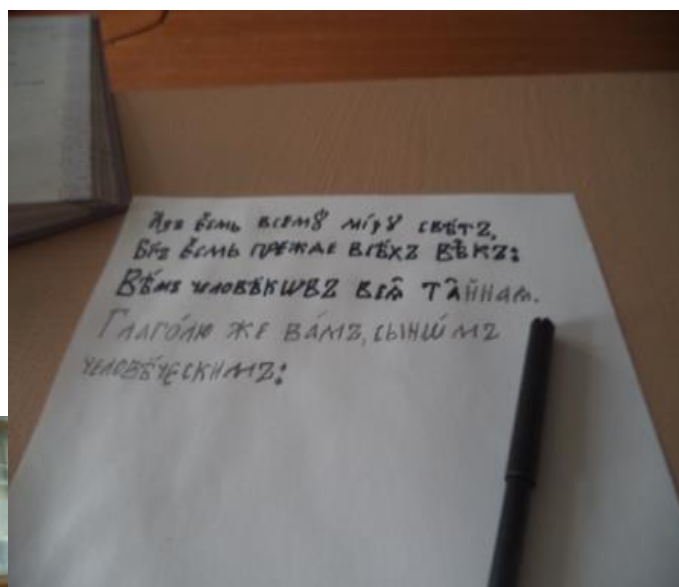 А҆́зъ є҆́смь всемꙋ̀ мі́рꙋ свѣ́тъ,
Бг҃ъ є҆́смь пре́жде всѣ́хъ вѣ̑къ:
Вѣ́мъ человѣ́кѡвъ всѧ̑ та̑йнаѧ.
Глаго́лю же ва́мъ, сынѡ́мъ
человѣ́ческимъ: